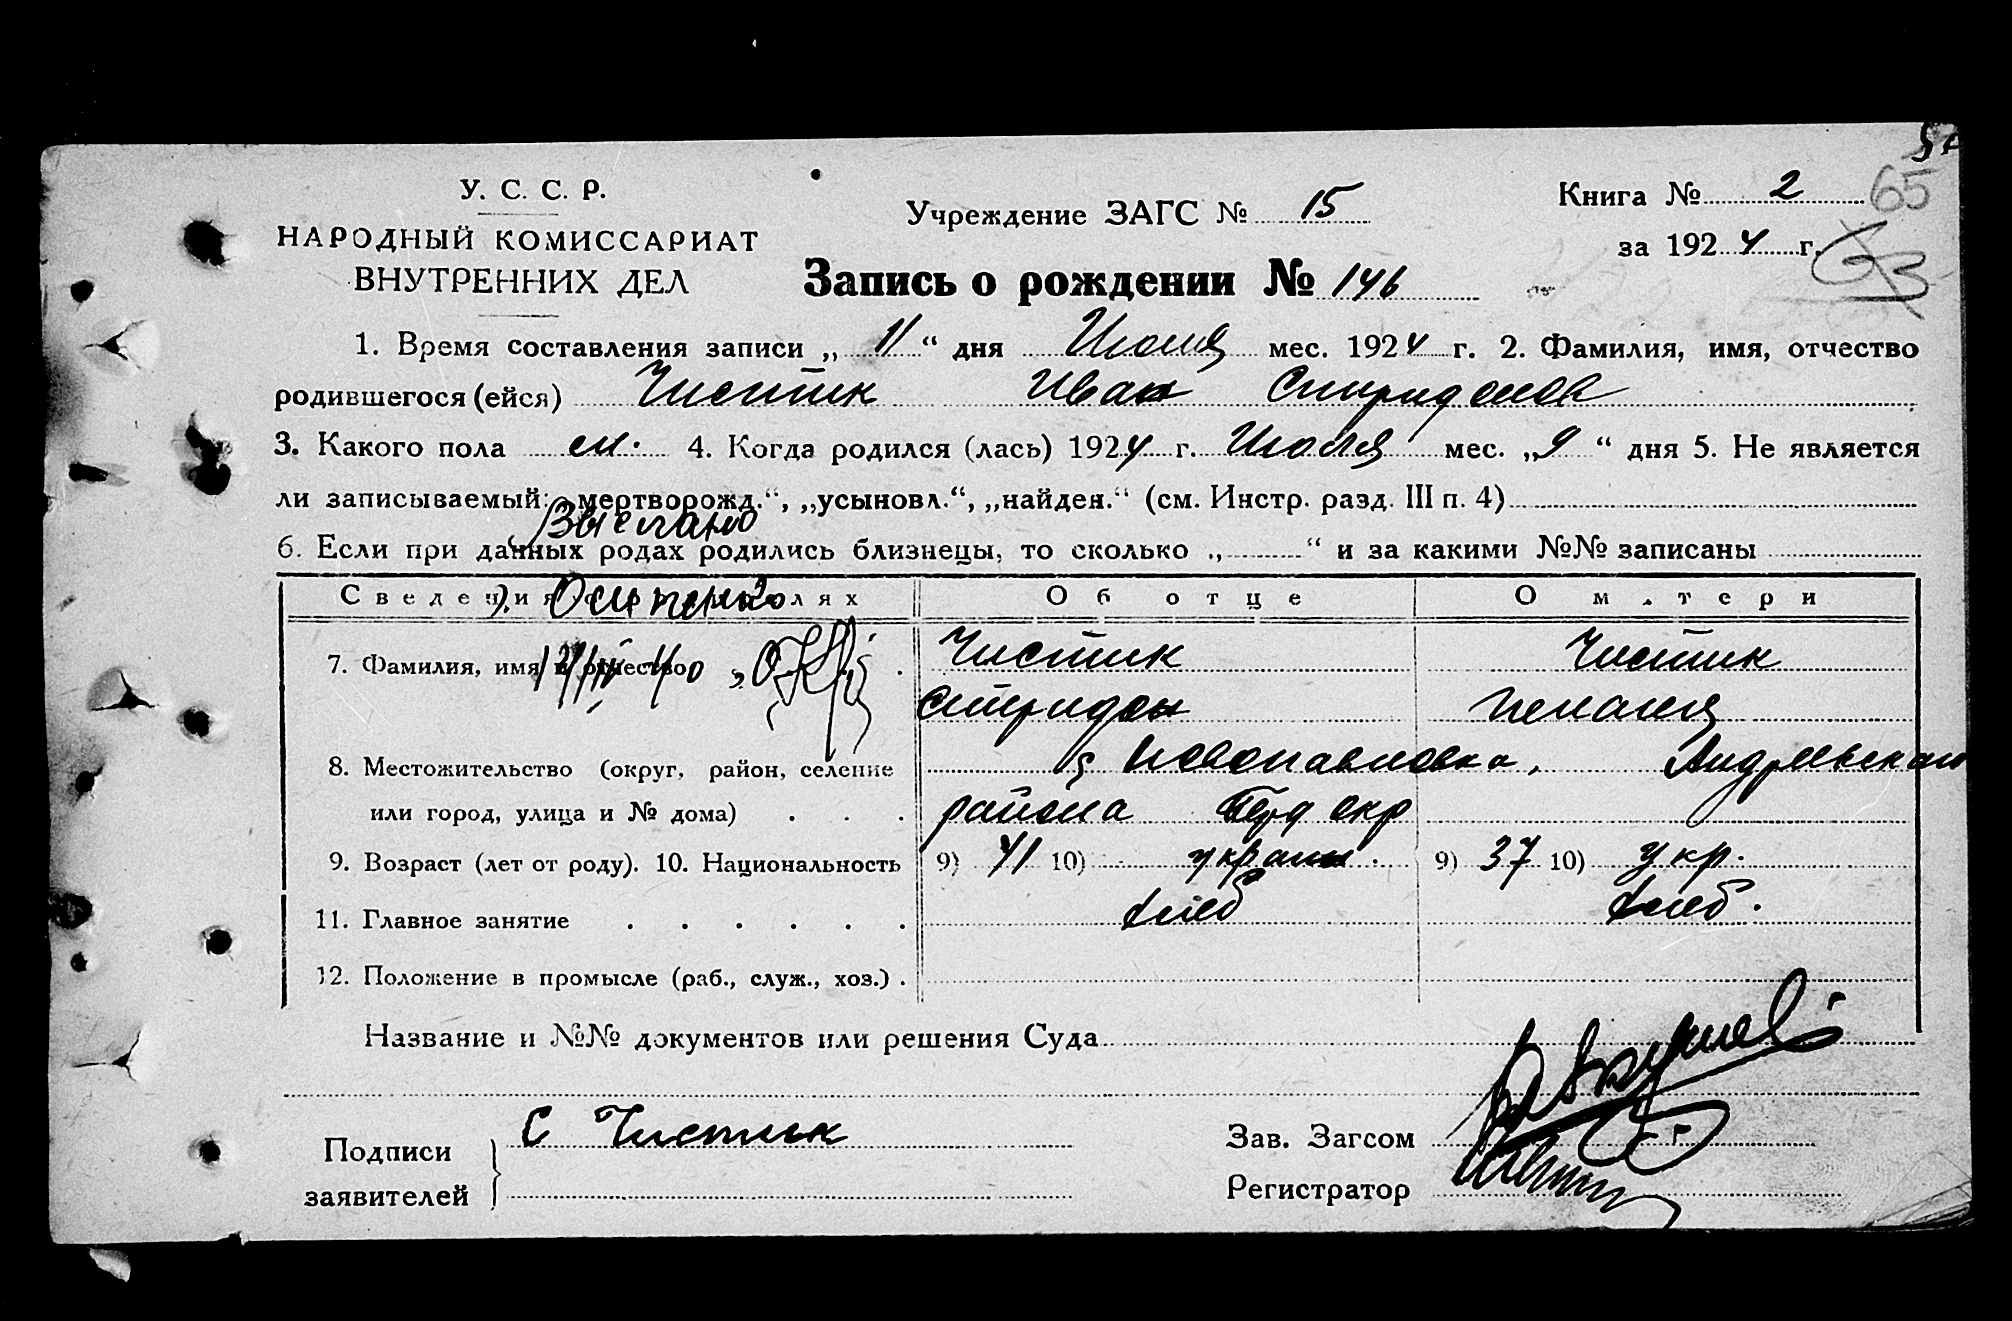 У. С. С. Р.
НАРОДНЫЙ КОМИССАРИАТ
ВНУТРЕННИХ ДЕЛ
Учреждение ЗАГС № 15
Книга № 2
65
за 1924 г.
Запись о рождении № 146
1. Время составления записи „ 11 “ дня Июля мес. 1924 г. 2. Фамилия, имя, отчество
родившегося (ейся) Чистик Иван Спиридонов
3. Какого пола м. 4. Когда родился (лась) 1924 г. Июля мес. „9 “ дня 5. Не является
ли записываемый: „мертворожд.“, „усыновл.“, „найден.“ (см. Инстр. разд. III п. 4)
Выслано
6. Если при данных родах родились близнецы, то сколько „ “ и за какими №№ записаны
Сведения о родителях Об отце О матери
г. Осипенко
7. Фамилия, имя и отчество Чистик Чистик
Спиридон Пелагея
8. Местожительство (округ, район, селение с Новопавловка, Андреевского
или город, улица и № дома) района Берд окр
9. Возраст (лет от роду). 10. Национальность 9) 41 10) украин. 9) 37 10) укр.
11. Главное занятие хлеб хлеб.
12. Положение в промысле (раб., служ., хоз.)
Название и №№ документов или решения Суда
Подписи заявителей С Чистик
Зав. Загсом
Регистратор